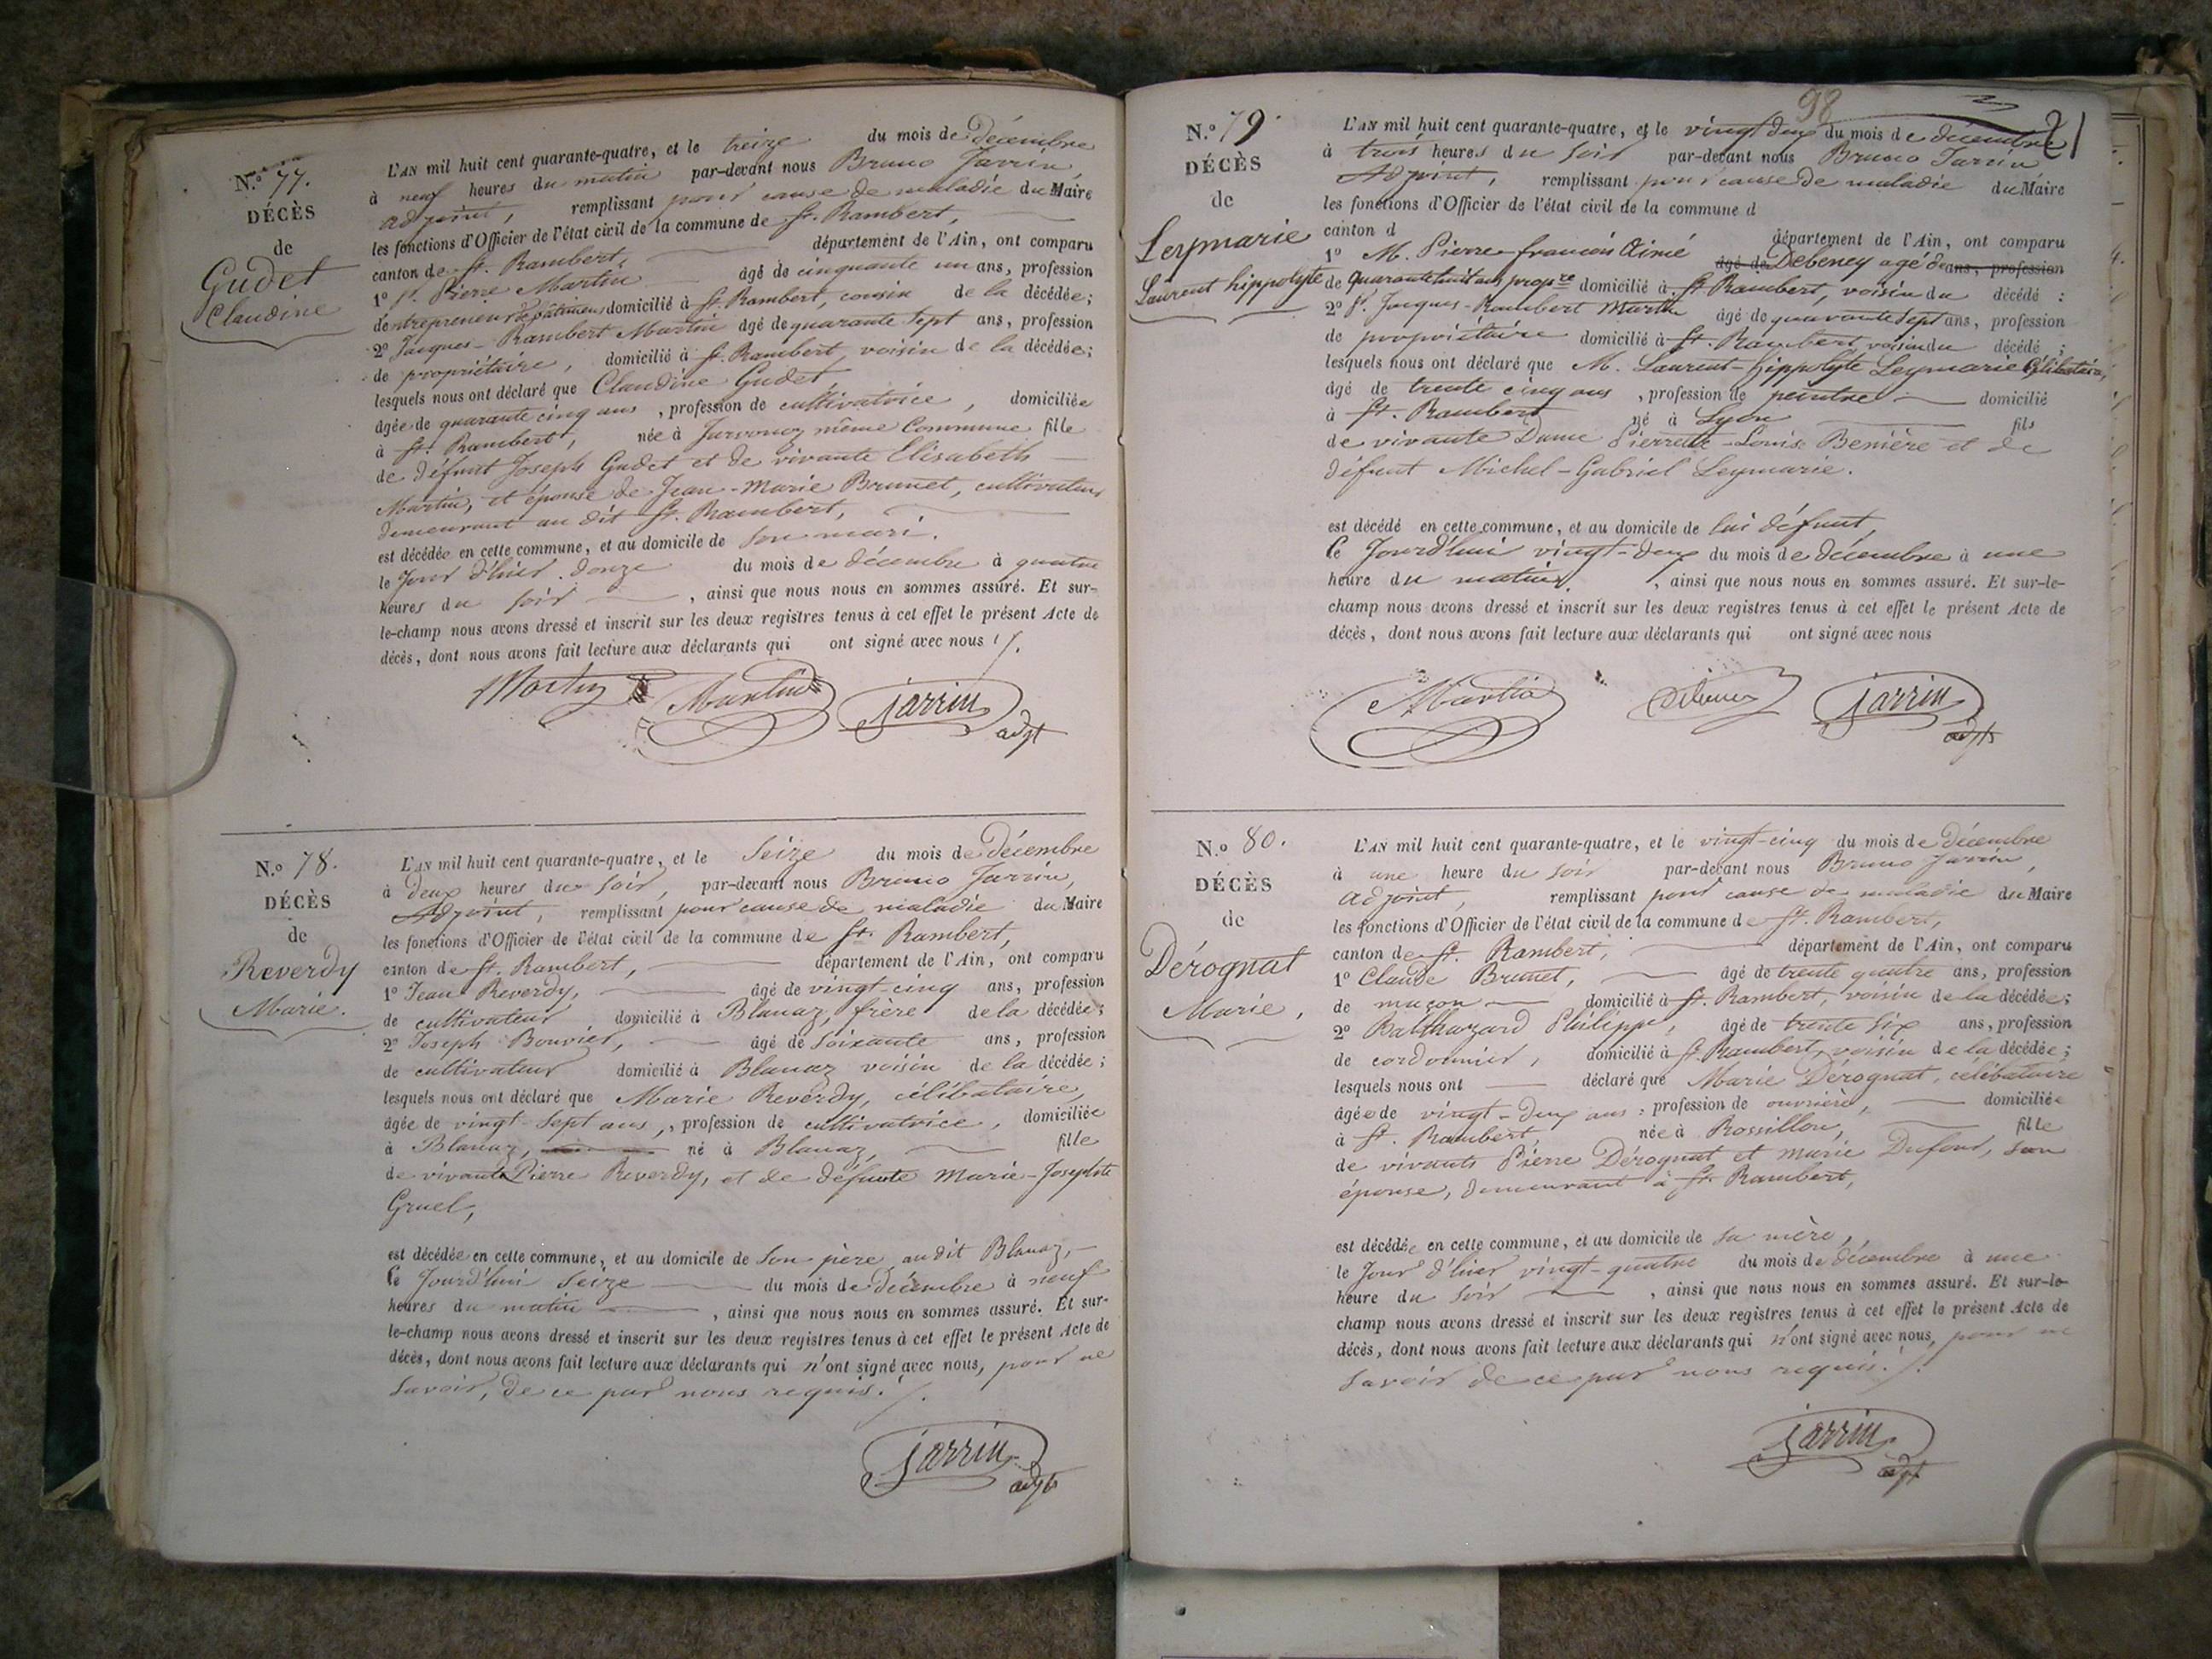 N.° 77.
DÉCÈS
de
Gudet
Claudine
L'AN mil huit cent quarante-quatre, et le treize du mois de Décembre
à neuf heures du matin par-devant nous Bruno Jarrin,
adjoint, remplissant pour cause de maladie du Maire
les fonctions d'Officier de l'état civil de la commune de St. Rambert,
canton de St. Rambert, département de l'Ain, ont comparu
1° Sr. Pierre Martin âgé de cinquante un ans, profession
d'entrepreneur de bâtimens domicilié à St. Rambert, cousin de la décédée;
2° Jacques-Rambert Martin âgé de quarante sept ans, profession
de propriétaire, domicilié à St. Rambert, voisin de la décédée;
lesquels nous ont déclaré que Claudine Gudet
âgée de quarante cinq ans, profession de cultivatrice, domiciliée
à St. Rambert, née à même Commune fille
de défunt Joseph Gudet et de vivante Elisabeth
Martin, et épouse de Jean-Marie Brunet, cultivateur
demeurant au dit St. Rambert,
est décédée en cette commune, et au domicile de son mari.
le jour d'hier douze du mois de décembre à quatre
heures du soir, ainsi que nous nous en sommes assuré. Et sur-
le-champ nous avons dressé et inscrit sur les deux registres tenus à cet effet le présent Acte de
décès, dont nous avons fait lecture aux déclarants qui ont signé avec nous ./.
Martin Martin Jarrin
adjt
N.° 78.
DÉCÈS
de
Reverdy
Marie.
L'AN mil huit cent quarante-quatre, et le seize du mois de Décembre
à deux heures du soir, par-devant nous Bruno Jarrin,
Adjoint, remplissant pour cause de maladie du Maire
les fonctions d'Officier de l'état civil de la commune de St. Rambert,
canton de St. Rambert, département de l'Ain, ont comparu
1° Jean Reverdy, âgé de vingt-cinq ans, profession
de cultivateur domicilié à Blanaz, frère de la décédée;
2° Joseph Bouvier, âgé de soixante ans, profession
de cultivateur domicilié à Blanaz voisin de la décédée;
lesquels nous ont déclaré que Marie Reverdy, célibataire,
âgée de vingt-sept ans, profession de cultivatrice, domiciliée
à Blanaz, né à Blanaz, fille
de vivante Pierre Reverdy, et de défunte Marie-Josephte
Gruel,
est décédée en cette commune, et au domicile de son père, au dit Blanaz,
Ce Jourd'hui seize du mois de décembre à neuf
heures du matin, ainsi que nous nous en sommes assuré. Et sur-
le-champ nous avons dressé et inscrit sur les deux registres tenus à cet effet le présent Acte de
décès, dont nous avons fait lecture aux déclarants qui n'ont signé avec nous, pour ne
savoir, de ce par nous requis. ./.
Jarrin
adjt
98
21
N.° 79.
DÉCÈS
de
Leymarie
Laurent hippolyte
L'AN mil huit cent quarante-quatre, et le vingt deux du mois de décembre
à trois heures du soir par-devant nous Bruno Jarrin
Adjoint, remplissant pour cause de maladie du Maire
les fonctions d'Officier de l'état civil de la commune d
canton d département de l'Ain, ont comparu
1° M. Pierre françois Aimé âgé de Debeney agé de ans, profession
de quarante huit ans propre domicilié à St. Rambert, voisin du décédé :
2° Sr. Jacques-Rambert Martin âgé de quarante sept ans, profession
de propriétaire domicilié à St. Rambert, voisin du décédé ;
lesquels nous ont déclaré que M. Laurent-hippolyte Leymarie Célibataire,
âgé de trente cinq ans, profession de peintre domicilié
à St. Rambert né à Lyon fils
de vivante Dame Pierrette-Louise Benière et de
défunt Michel-Gabriel Leymarie.
est décédé en cette commune, et au domicile de lui défunt,
Ce Jourd'hui vingt-deux du mois de décembre à une
heure du matin, ainsi que nous nous en sommes assuré. Et sur-le-
champ nous avons dressé et inscrit sur les deux registres tenus à cet effet le présent Acte de
décès, dont nous avons fait lecture aux déclarants qui ont signé avec nous
Martin Debeney Jarrin
adjt
N.° 80.
DÉCÈS
de
Dérognat
Marie,
L'AN mil huit cent quarante-quatre, et le vingt-cinq du mois de Décembre
à une heure du soir par-devant nous Bruno Jarrin,
adjoint, remplissant pour cause de maladie du Maire
les fonctions d'Officier de l'état civil de la commune de St. Rambert,
canton de St. Rambert, département de l'Ain, ont comparu
1° Claude Brunet, âgé de trente quatre ans, profession
de maçon domicilié à St. Rambert, voisin de la décédée;
2° Balthazard Philippe, âgé de trente six ans, profession
de cordonnier, domicilié à St. Rambert, voisin de la décédée;
lesquels nous ont déclaré que Marie Dérognat, célibataire
âgée de vingt-deux ans, profession de ouvrière, domiciliée
à St. Rambert, née à Rossillon, fille
de vivants Pierre Dérognat et marie Dufour, son
épouse, demeurant à St. Rambert,
est décédée en cette commune, et au domicile de sa mère,
le jour d'hier vingt-quatre du mois de décembre à une
heure du soir, ainsi que nous nous en sommes assuré. Et sur-le-
champ nous avons dressé et inscrit sur les deux registres tenus à cet effet le présent Acte de
décès, dont nous avons fait lecture aux déclarants qui n'ont signé avec nous, pour ne
savoir de ce par nous requis. ./.
Jarrin
adjt